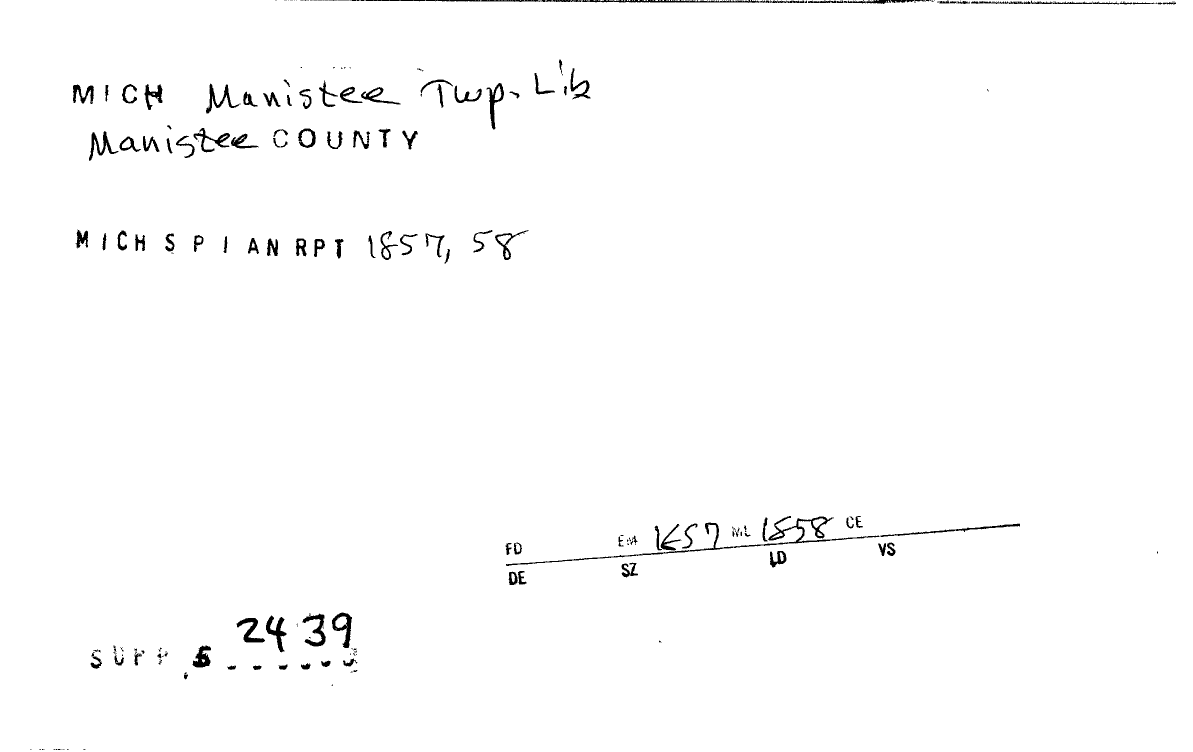 MICH Manistee Twp. Lib
Manistee COUNTY
MICH S P I AN RPT 1857, 58
FD EM 1857 ML 1858 CE
DE SZ LD VS
2439
SUPP